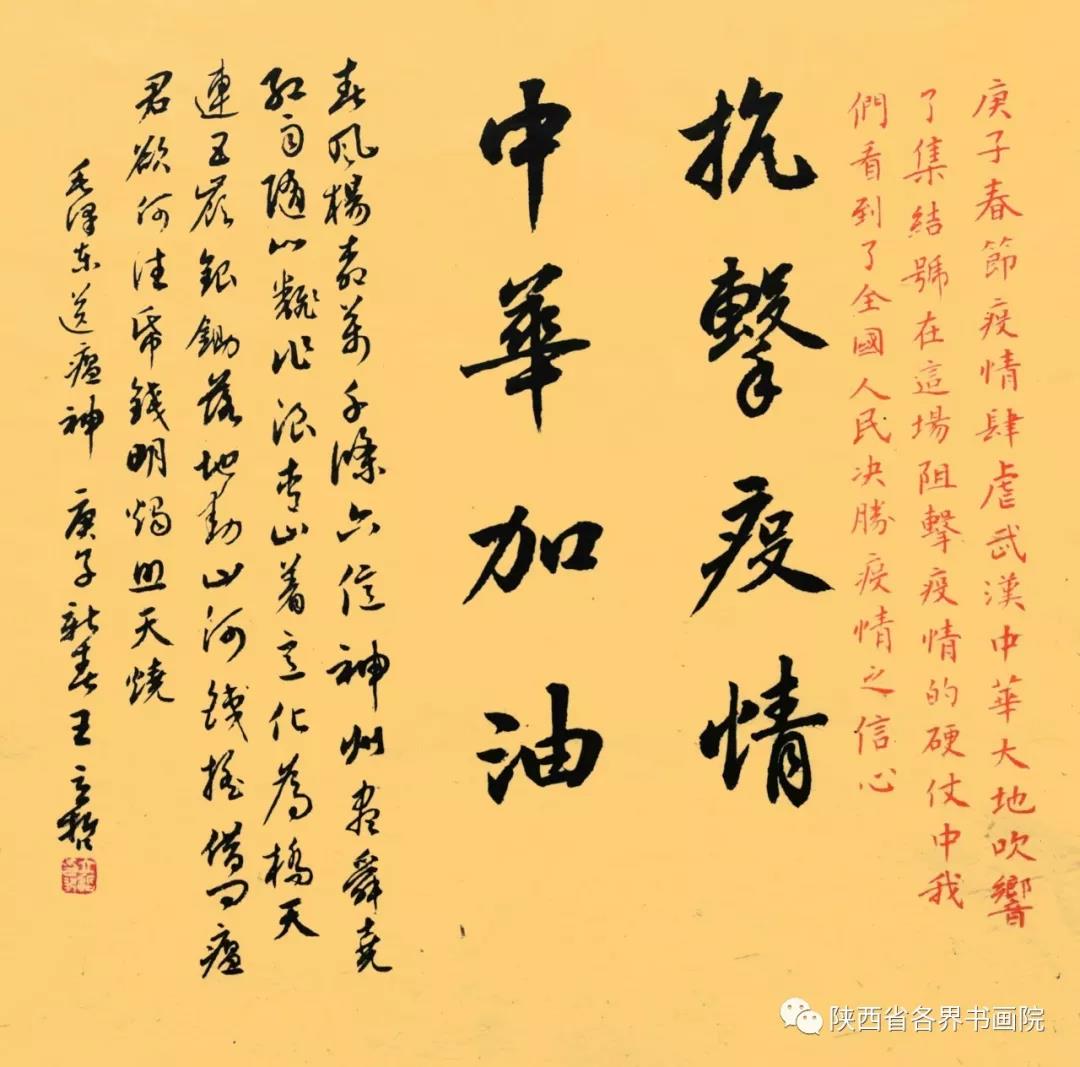 庚子春節疫情肆虐武漢中華大地吹響
了集結號在這場阻擊疫情的硬仗中我
們看到了全國人民决勝疫情之信心
抗擊疫情
中華加油
春风楊柳萬千條六億神州盡舜堯
红雨隨心翻作浪青山着意化為橋天
連五嶺銀鋤落地動山河鐵摇借问瘟
君欲何往帋錢明燭照天燒
毛澤东送瘟神 庚子新春王立哲
陕西省各界书画院